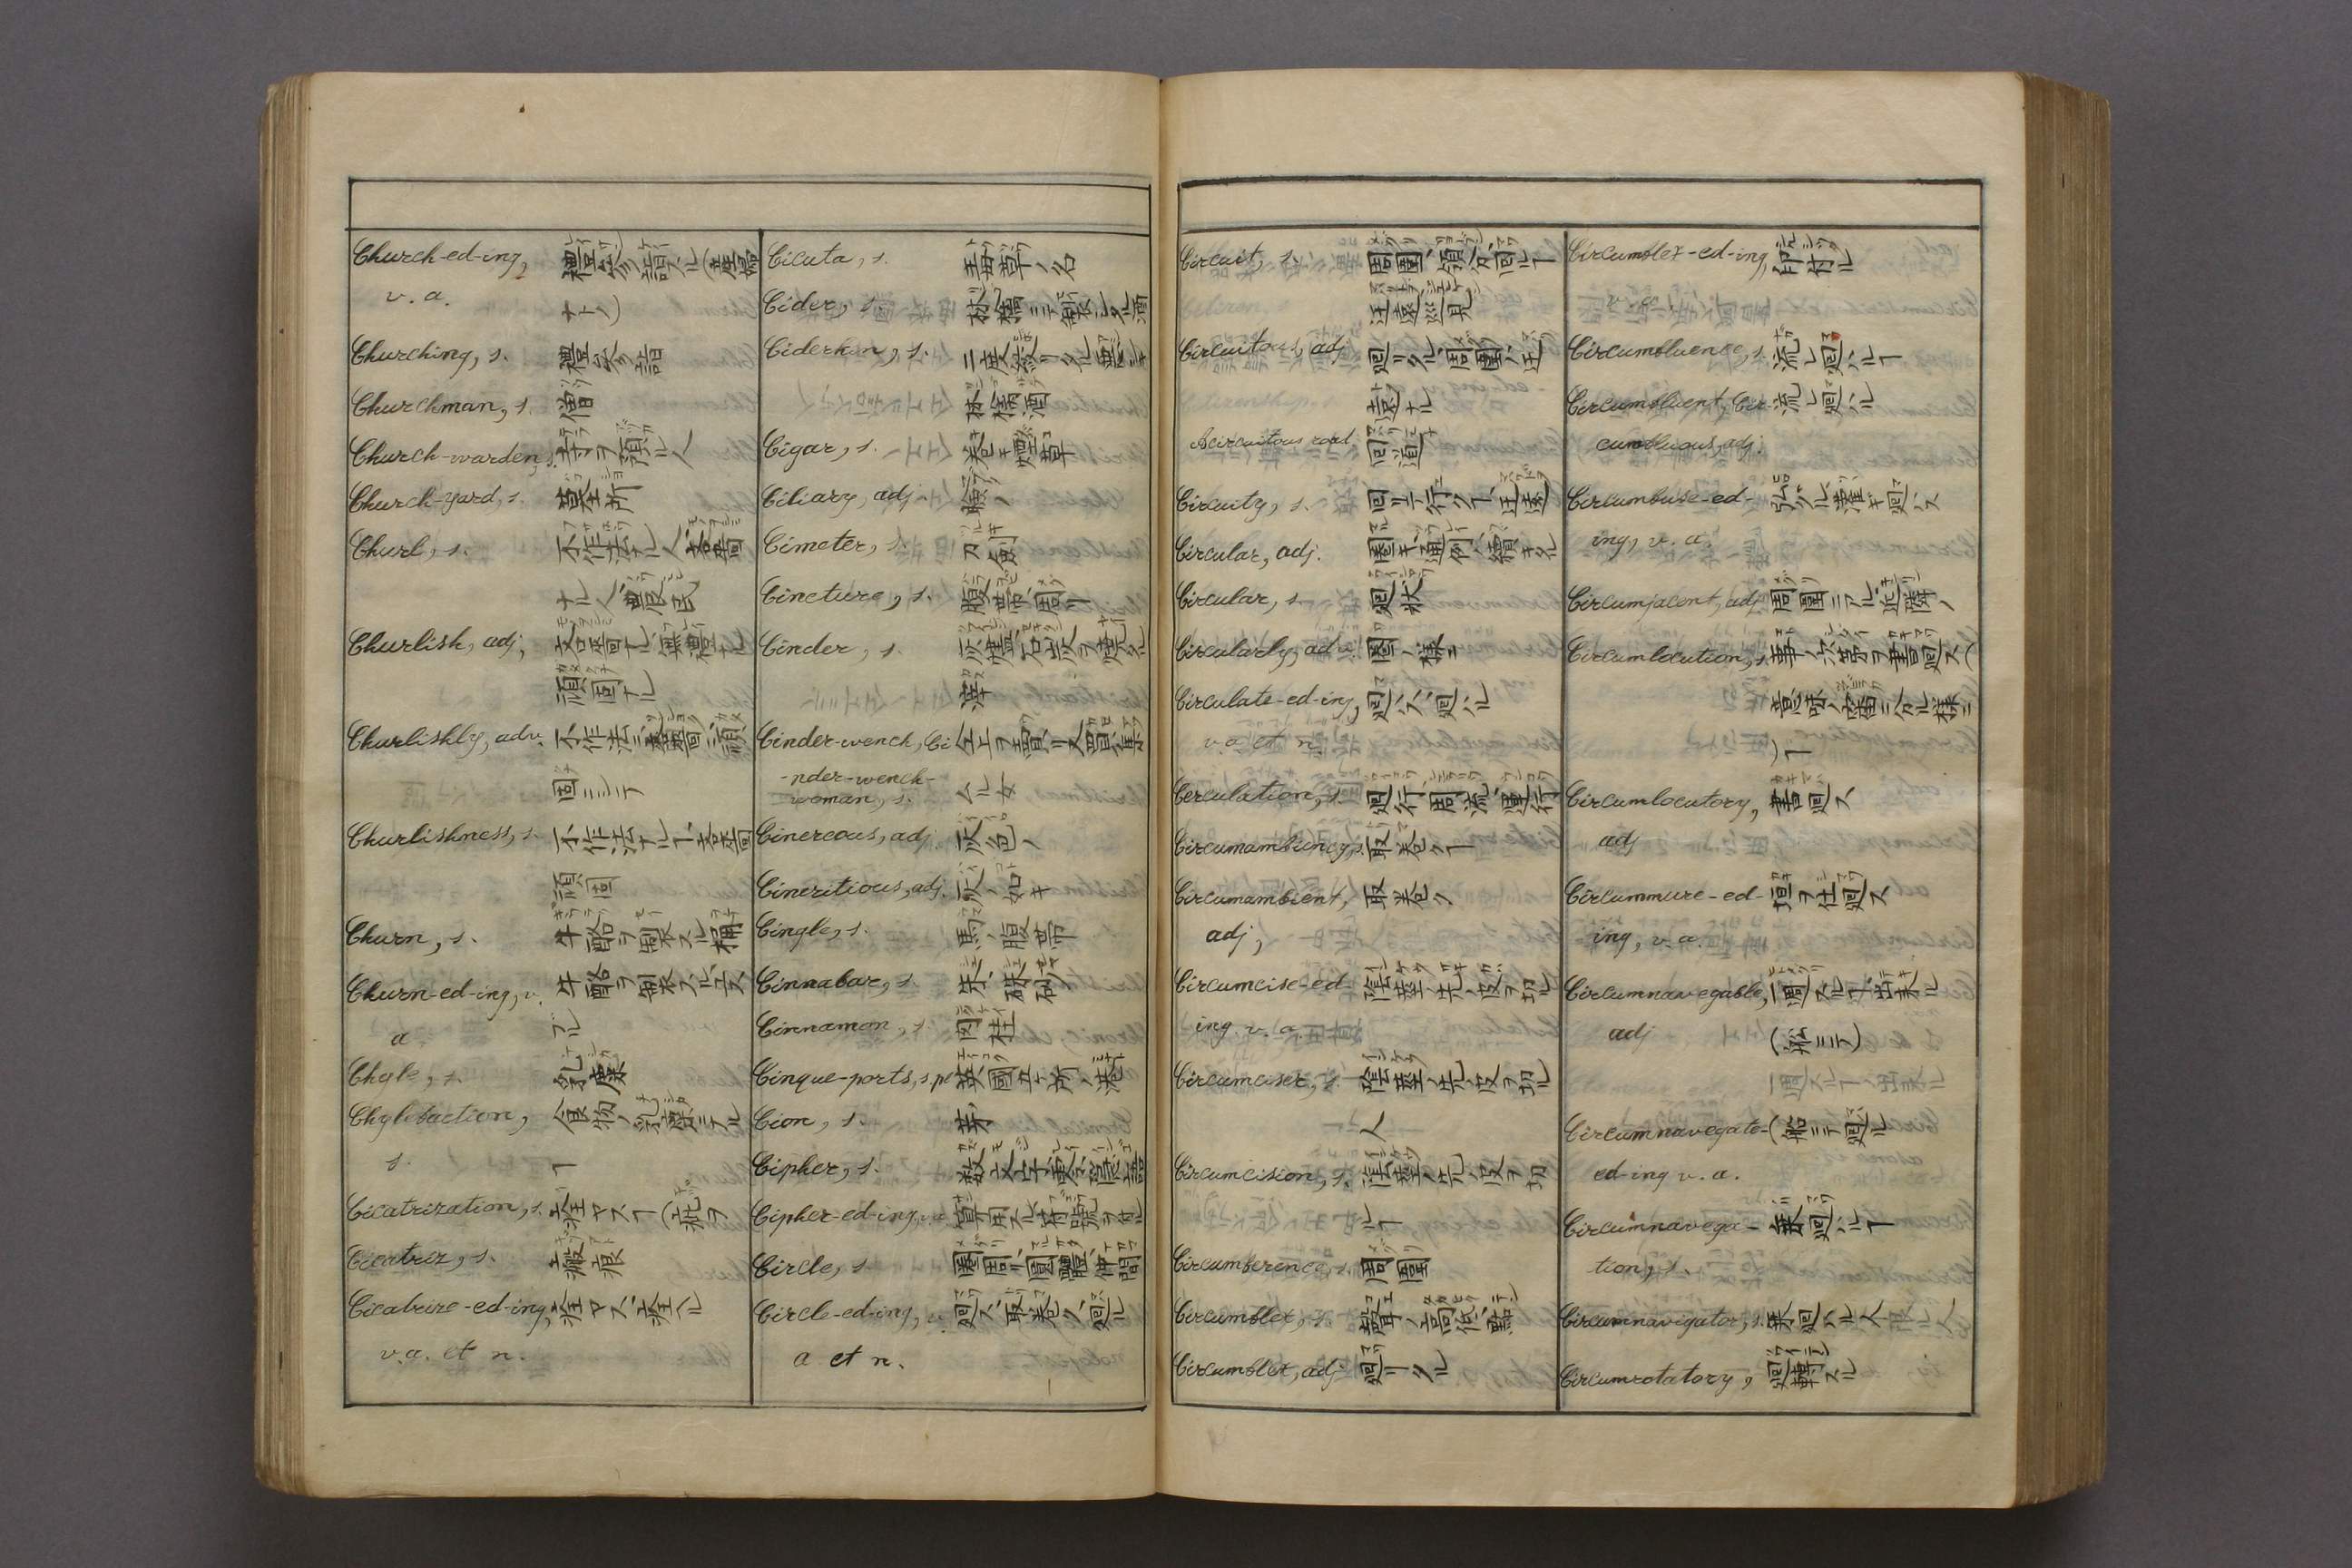 Church-ed-ing, 禮笑ヲ諸スル(産婦
v. a. ナトノ)
Churching, s.
Churchman, s. 僧
Church-warden, s. 寺ヲ預ル人
Church-yard, s. 墓所
Churl, s. 不作法ナル人、吝嗇
ナル人、農民
Churlish, adj, 吝嗇ナル、無禮ナル
頑固ナル
Churlishly, adv. 不作法ニ、吝嗇ニ、頑
固ニシテ
Churlishness, s. 不作法ナルヿ、吝嗇
頑固
Churn, s. 牛酪ヲ製スル桶
Churn-ed-ing, v. 牛酪ヲ製スル
a
Chyle, s. 乳糜
Chylifaction, 食物ノ乳糜ニナル
s. ヿ
Cicatrization, s. 痊マスヿ(疵ヲ
Cicatrix, s. 瘢痕
Cicatrize-ed-ing, 痊マス、痊ヘル
v.a. et n.
Cicuta, s. 毒草ノ名
Cider, s. 林檎ニテ製シタル酒
Ciderkin, s. 二度絞リタル悪シキ
林檎酒
Cigar, s. 巻煙草
Ciliary, adj. 瞼ノ
Cimeter, s. 刀劍
Cincture, s. 腹帶、周リ
Cinder, s. 灰燼、石炭ヲ焼タル
滓
Cinder-wench, Ci 仝上ヲ買リ又買集
-nder-wench-
woman, s. ムル女
Cinereous, adj. 灰色ノ
Cineritious, adj. 灰ノ如キ
Cingle, s. 馬ノ腹帶
Cinnabar, s. 朱、硃砂
Cinnamon, s. 肉桂
Cinque-ports, s. pl 英國五ケ所ノ港
Cion, s. 芽
Cipher, s. 數文字、零、隱語
Cipher-ed-ing, v. 算用スル、符號ヲ
Circle, s. 圏、周リ、圓體、仲間
Circle-ed-ing, v. 廻ス、取巻ク、廻ル
a et n.
Circuit, s. 周圍、領分、回ルヿ
迂遠、巡見
Circuitous, adj 廻リタル、周圍ノ、迂
遠ナル
A circuitous road 回道
Circuity, s. 回リ行クヿ、迂遠
Circular, adj. 圏キ、通例ノ、續キタル
Circular, s. 廻狀
Circularly, adv. 圏ノ様ニ
Circulate-ed-ing, 廻ス、廻ル
v. a. et n.
Cerculation, s. 廻行、周流、運行
Circumambiency, s. 取巻クヿ
Circumambient, 取巻ク
adj,
Circumcise-ed- 陰莖ノ先ノ皮ヲ切ル
ing v. a.
Circumciser, s. 陰莖ノ先ノ皮ヲ切ル
人
Circumcision, s. 陰莖ノ先ノ皮ヲ切
ルヿ
Circumference, s. 周圍
Circumflex, s. 聲ノ高低ノ點
Circumflex, adj. 廻リタル
Circumflex-ed-ing, 印ヲ付ル
v. a.
Circumfluence, s. 流レ廻ルヿ
Circumfluent, Cir- 流レ廻ル
cumfluous, adj.
Circumfuse-ed- 弘クル、灌キ廻ス
ing, v. a.
Circumjacent, adj 周圍ニアル、近隣ノ
Circumlocution, s. 事ノ次第ヲ書廻ス(
意味ノ ニ分ル様ニ
)ヿ
Circumlocutory, 書廻ス
adj
Circummure-ed- 垣ヲ仕廻ス
ing, v. a.
Circumnavegable, 一週スルヿ出来ル
adj (船ニテ)
Circumnavegate- (船ニテ廻ル
ed-ing v. a.
Circumnavega- 乗廻ルヿ
tion, s.
Circumnavigator, s. 乗廻ル人
Circumrotatory, 廻轉スル